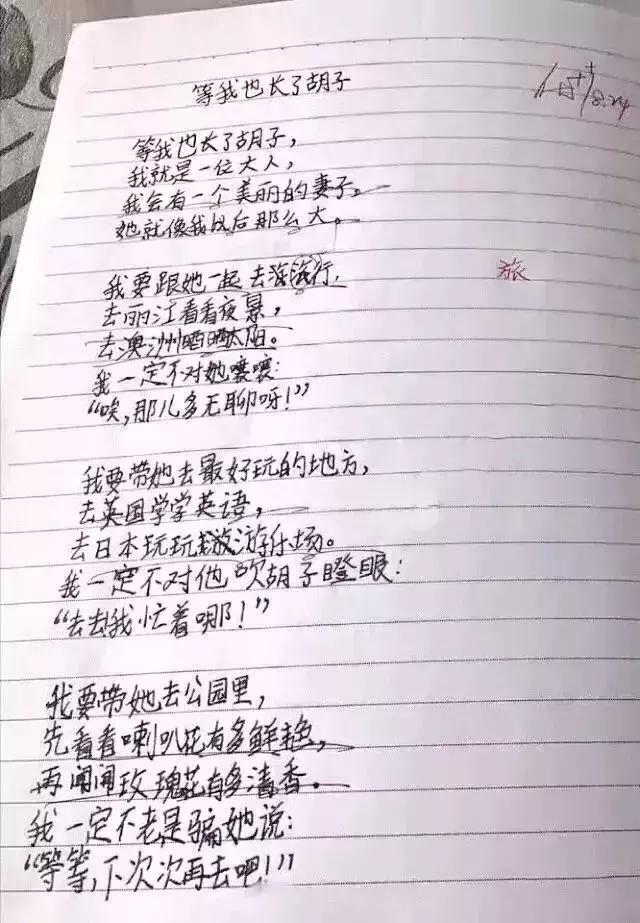 等我也长了胡子
佳++ 8.24
等我也长了胡子，
我就是一位大人，
我会有一个美丽的妻子。
她就像我以后那么大。
我要跟她一起去海行，
旅
去丽江看看夜景，
去澳洲晒晒太阳。
我一定不对她嚷嚷：
“唉，那儿多无聊呀！”
我要带她去最好玩的地方，
去英国学学英语，
去日本玩玩游乐场。
我一定不对他吹胡子瞪眼：
“去去我忙着哪！”
我要带她去公园里，
先看看喇叭花有多鲜艳，
再闻闻玫瑰花有多清香。
我一定不老是骗她说：
“等等，下次次再去吧！”